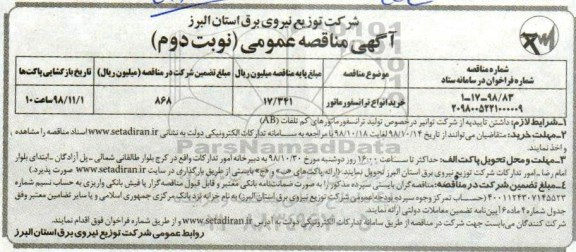 شرکت توزیع نیروی برق استان البرز
آگهی مناقصه عمومی (نوبت دوم)
شماره مناقصه
شماره فراخوان در سامانه ستاد
موضوع مناقصه
مبلغ پایه مناقصه میلیون ریال
مبلغ تضمین شرکت در مناقصه (میلیون ریال)
تاریخ بازگشایی پاکت‌ها
۹۸/۸۳-۱۷-۱
۲۰۹۸۰۰۵۲۲۱۰۰۰۰۰۹
خرید انواع ترانسفورماتور
۱۷/۳۴۱
۸۶۸
۹۸/۱۱/۱ ساعت ۱۰
۱-شرایط لازم: داشتن تاییدیه از شرکت توانیر در خصوص تولید ترانسفورماتورهای کم تلفات (AB)
۲-مهلت خرید: متقاضیان می‌توانند از تاریخ ۹۸/۱۰/۱۴ لغایت ۹۸/۱۰/۱۸ با مراجعه به سامانه تدارکات الکترونیکی دولت به نشانی www.setadiran.ir اسناد مناقصه را مشاهده ،
و اخذ نمایند.
۳-مهلت و محل تحویل پاکت الف: حداکثر تا ساعت ۱۶:۰۰ روز دوشنبه مورخ ۹۸/۱۰/۳۰ به دبیرخانه امور تدارکات واقع در کرج بلوار طالقانی شمالی -پل آزادگان -ابتدای بلوار
امام رضا -امور تدارکات شرکت توزیع نیروی برق استان البرز تحویل نمایند. (ارائه پاکت‌های «ب» و «ج» بایستی از طریق بارگذاری در سایت www.setadiran.ir صورت پذیرد.)
۴-مبلغ تضمین شرکت در مناقصه: مناقصه‌گران بایستی سپرده مذکور را به صورت ضمانت‌نامه بانکی معتبر و قابل قبول مناقصه‌گزار یا فیش بانکی واریزی به حساب نسیم شماره
۴۰۰۱۱۲۴۳۰۷۱۴۵۵۲۳ (حساب تمرکز وجوه سپرده بودجه عمومی شرکت توزیع نیروی برق استان البرز) به نام خزانه نزد بانک مرکزی جمهوری اسلامی و یا سایر تضامین معتبر وفق
جدول شماره ۴ ماده ۶ آیین‌نامه تضمین معاملات دولتی ارائه نمایند.
شرکت کنندگان می‌بایست جهت شرکت در مناقصه از طریق سامانه تدارکات الکترونیکی دولت به آدرس www.setadiran.ir و از طریق شماره فراخوان فوق اقدام نمایند.
روابط عمومی شرکت توزیع نیروی برق استان البرز
ParsNamadData